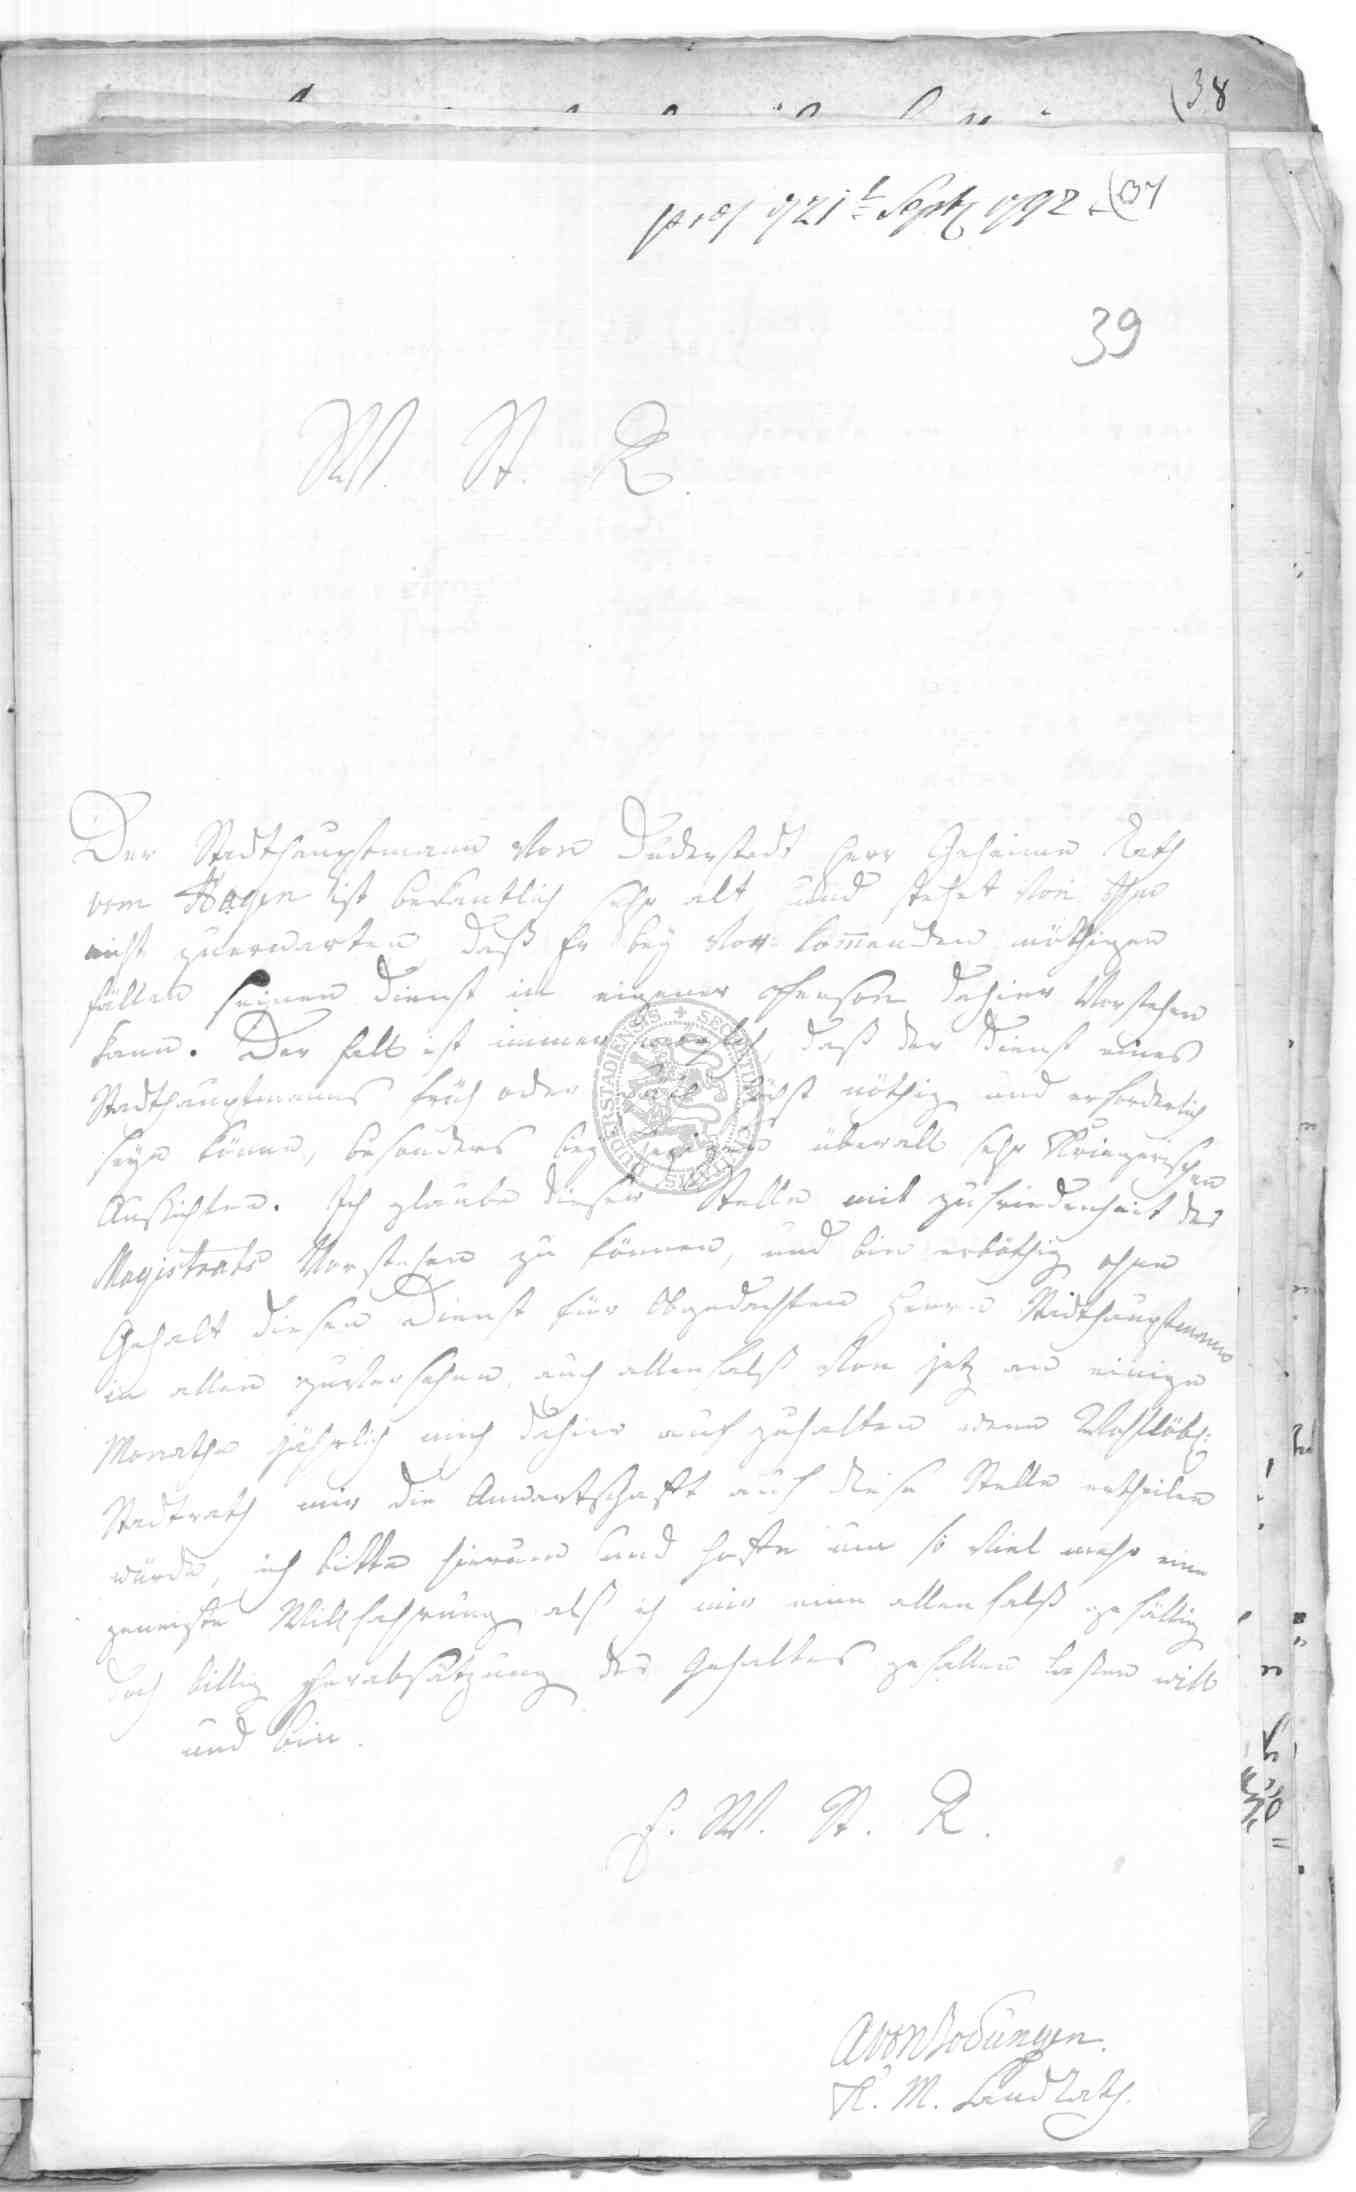 38
praes d 21t Septr 1792
37
39
W. St. R.
Der Stadthauptmann von Duderstadt Herr Geheime Rath
vom Hagen ist bekantlich sehr alt und stehet von Ihm
nicht zuerwarten daß Er bey vor kommenden nöthigen
fällen seinen Dienst in eigener Person dahier Vorstehen
kann. Der fall ist immer möglich, daß der Dienst eines
Stadthauptmanns früh oder spät höchst nöthig und erforderlich
seyn könne, besonders bey jezigen überall sehr Kriegerischen
Aussichten. Ich glaube dieser Stelle mit zufriedenheit des
Magistrats Vorstehen zu können, und bin erböthig ohne
Gehalt diesen Dienst für Obgedachten Herrn Stadthauptmann
in allen zuversehen, auch allenfalß von jetz an einige
Monathe jährlich mich dahier auf zuhalten wenn Wohllöbl:
Stadtrath mir die Anwartschafft auf diese Stelle ertheilen
würde, ich bitte hierum und hoffe um so viel mehr eine
geneigte Willfahrung als ich mir eine allenfalß gefällig
doch billig herabsätzung des Gehaltes gefallen laßen will
und bin.
E. W. St. R.
A von Bodungen
K. M. LandRath.
SECRETUM DUDERSTADIENSIS